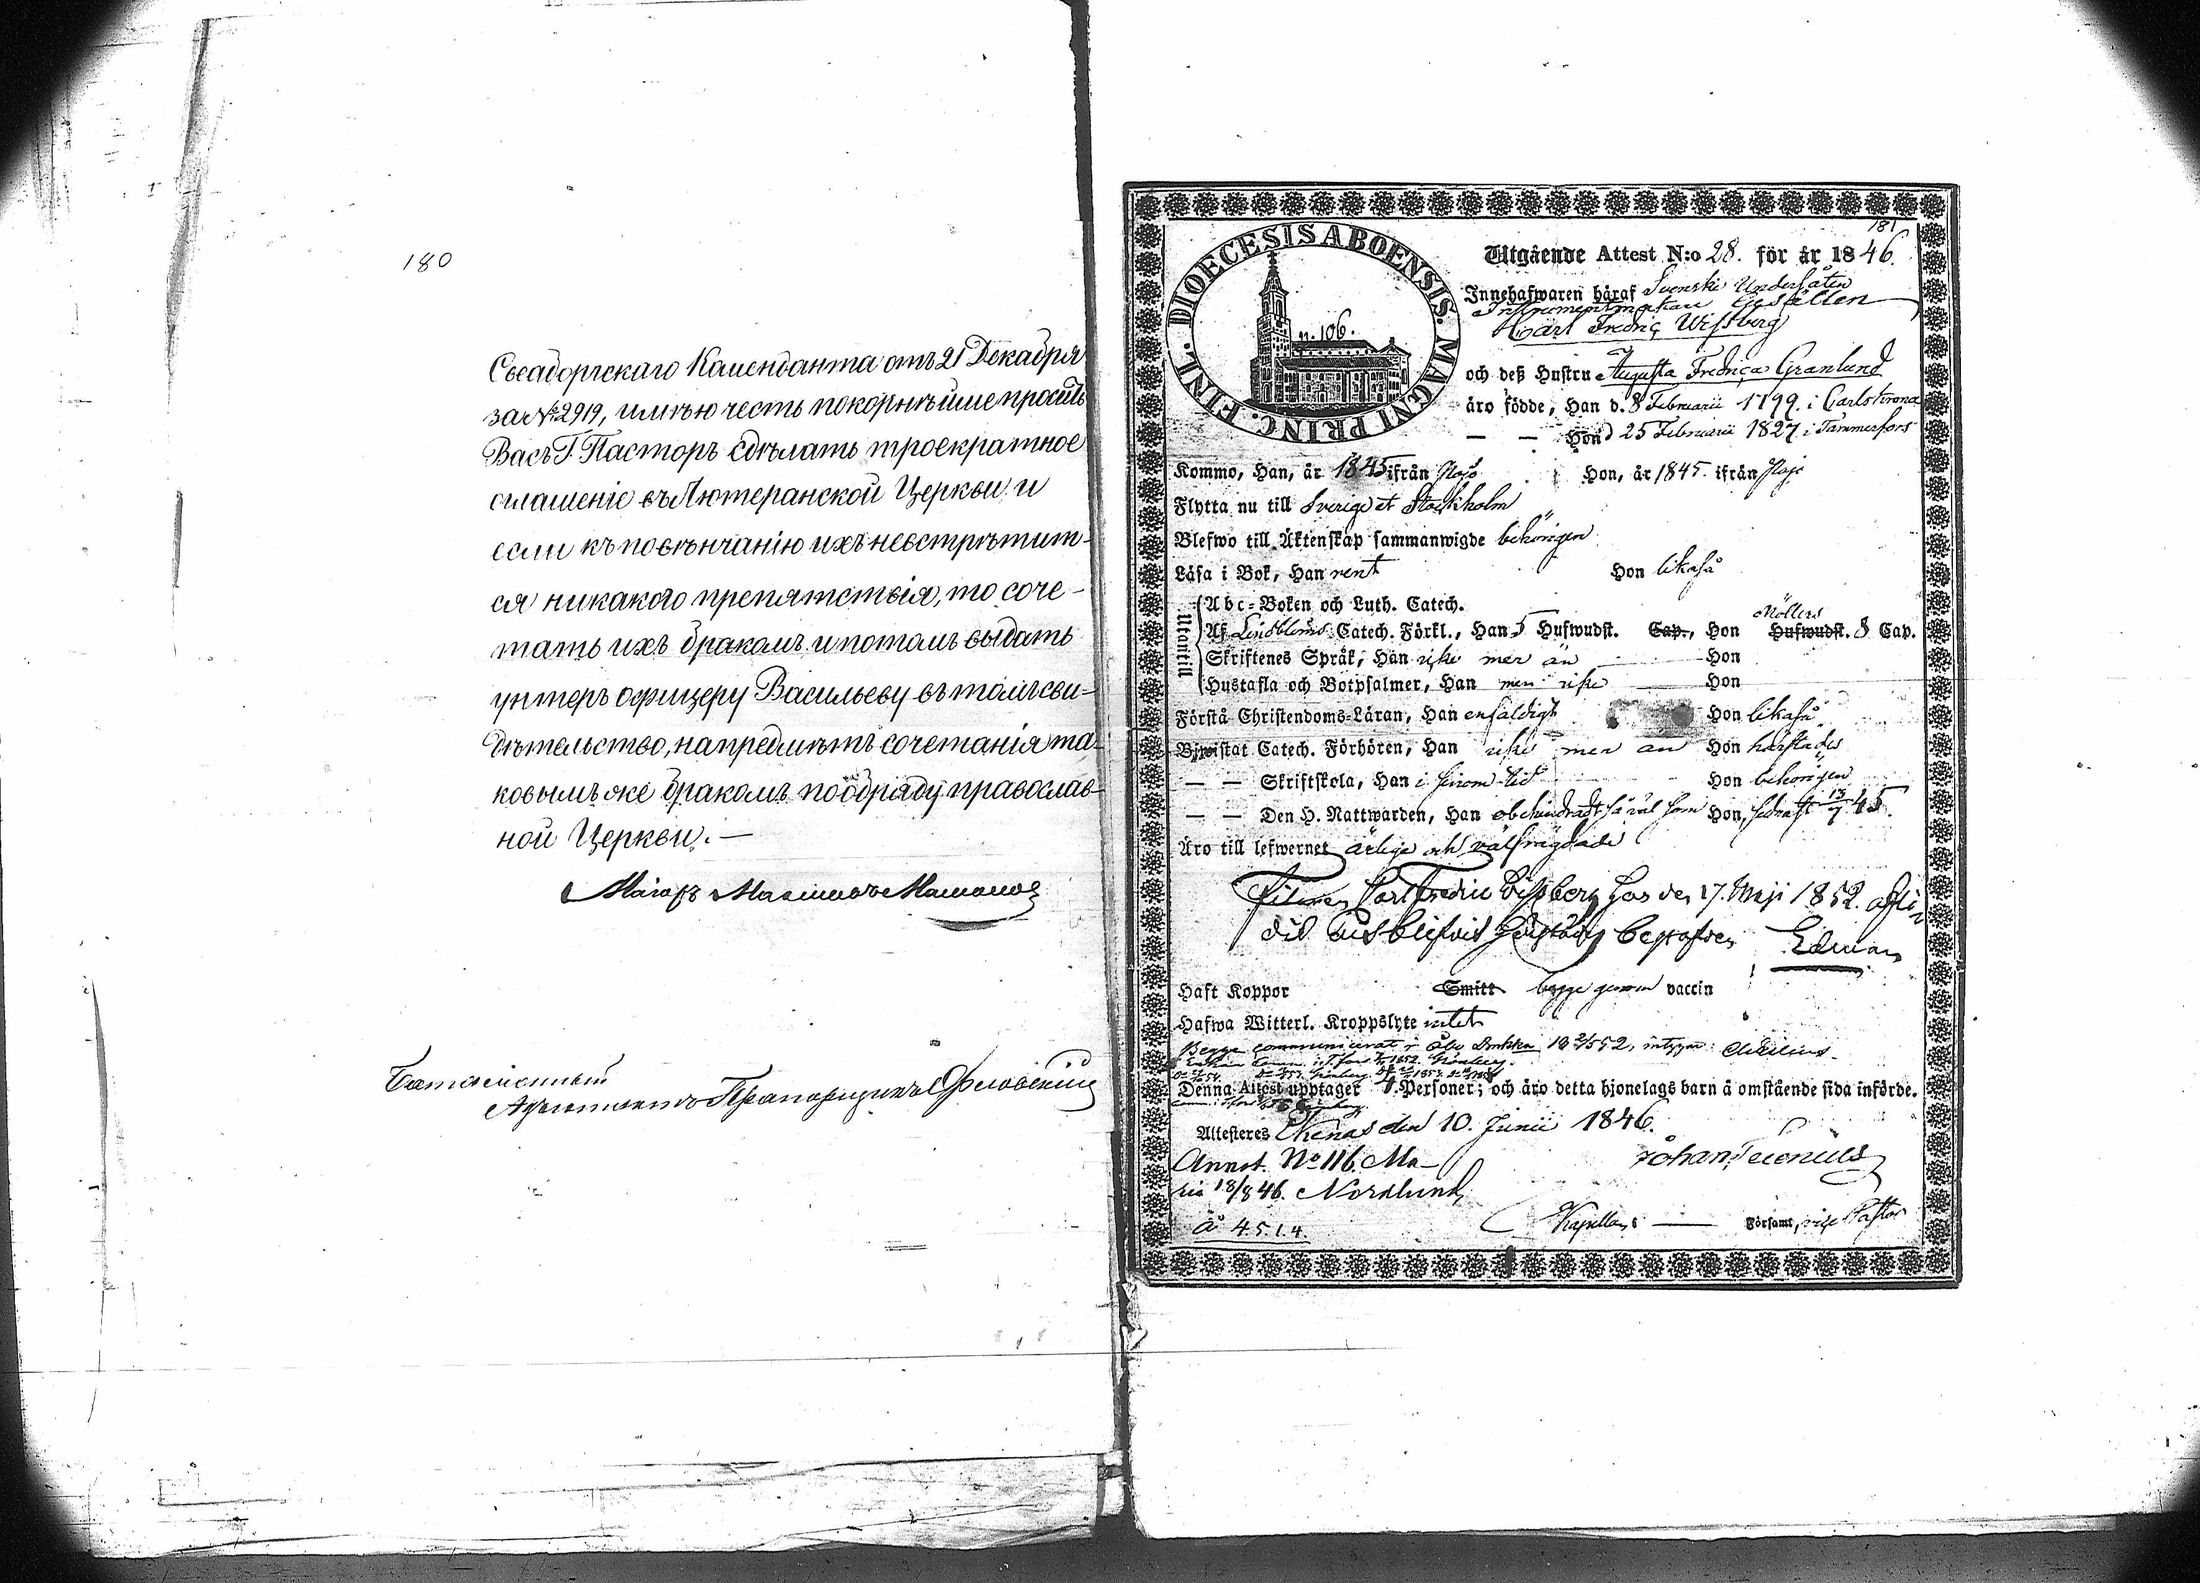 180
Свеаборгскаго Каменданта отъ 21 Декабря
за № 2919, имѣю честь покорнѣйше просить
Васъ Г. Пасторъ сдѣлать троекратное
оглашеніе въ Лютеранской Церкви и
если къ повѣнчанію ихъ невстрѣтит-
ся никакого препятствія, то соче-
тать ихъ бракомъ и потомъ выдать
унтеръ офицеру Васильеву въ томъ сви-
дѣтельство, на предмѣтъ сочетанія та-
ковымъ же бракомъ по обряду православ-
ной Церкви. —
Маіоръ
Баталіонный
Адъютантъ Прапорщикъ
181
DIOECESIS ABOENSIS. MAGNI PRINC. FINL.
n. 106.
Utgående Attest N:o 28. för år 1846.
Innehafwaren häraf Svenske Undersåten
Instrumentmakare Gesällen
Karl Fredric Wissberg
och deß Hustru Augusta Fredrica Granlund
äro födde, Han d. 8 Februarii 1799. i Carlskrona
— — Hon d 25 Februarii 1827 i Tammerfors
Kommo, Han, år 1845 ifrån Pojo Hon, år 1845. ifrån Pojo
Flytta nu till Sverige et Stockholm
Blefwo till Äktenskap sammanwigde behörigen
Läsa i Bok, Han rent Hon likaså
Utantill
Abc-Boken och Luth. Catech.
Af Lindbloms Catech. Förkl., Han 5 Hufwudst. Cap., Hon Möllers Hufwudst. 8 Cap.
Skriftenes Språk, Han icke mer än Hon
Hustafla och Botpsalmer, Han men icke Hon
Förstå Christendoms-Läran, Han enfaldigt Hon likaså
Bjwistat Catech. Förhören, Han icke mer än Hon härstädes
— — Skriftskola, Han i sinom tid Hon behörigen
— — Den H. Nattwarden, Han obehindradt så väl som Hon, sednast 13/7 45.
Äro till lefwernet ärlige och välfrägdade
Carl Fredric Wissberg har den 17. Maji 1852. aflidit
och blifvit begrafven Edman
Haft Koppor Smitt begge genom vaccin
Hafwa Witterl. Kroppslyte intet
Begge communicerat i Åbo
Denna Attest upptager Personer; och äro detta hjonelags barn å omstående sida införde.
Attesteres Ekenäs den 10. Junii 1846.
Annot. No 116. Ma-
ria 18/8 46. Nordlund
Johan
Kapellan — Församl, vice Pastor
Å 4.5.1.4.